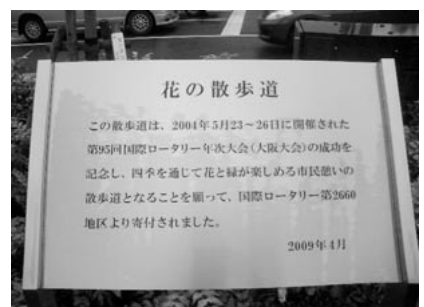 花の散歩道
この散歩道は、2004年5月23〜26日に開催された
第95回国際ロータリー年次大会(大阪大会)の成功を
記念し、四季を通じて花と緑が楽しめる市民憩いの
散歩道となることを願って、国際ロータリー第2660
地区より寄付されました。
2009年4月